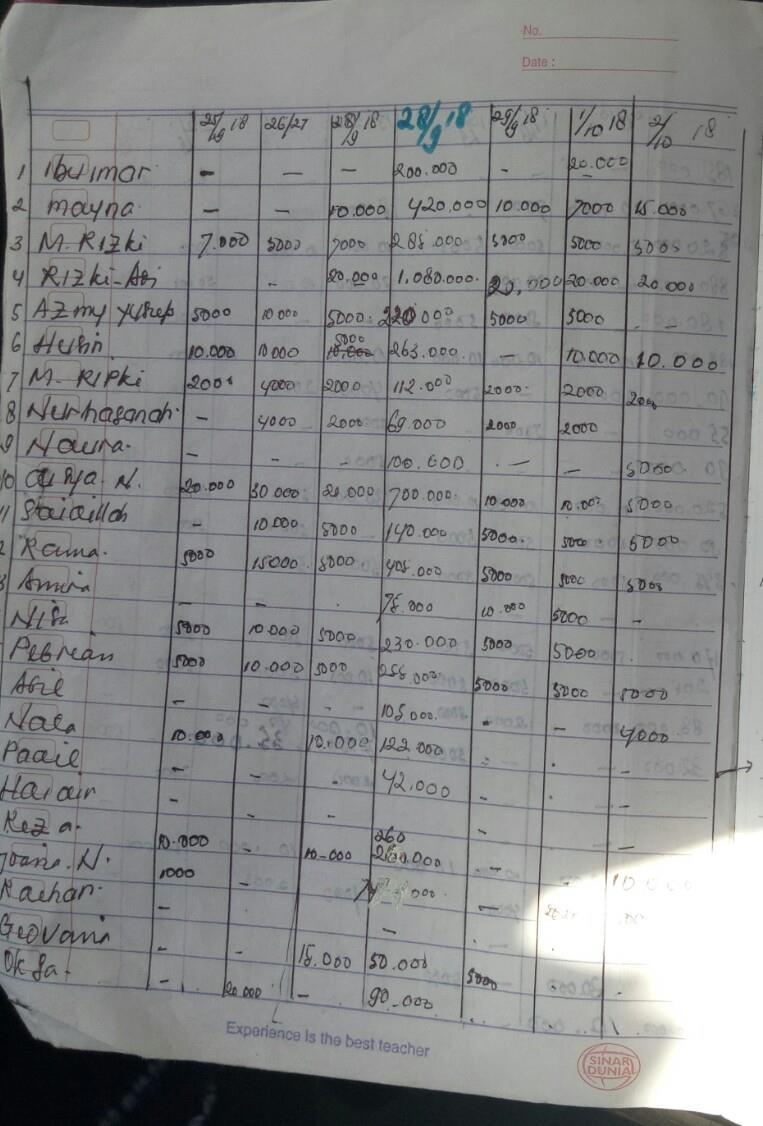 No.
Date :
25/9 18 26/27 28/9 18 28/9 18 29/9 18 1/10 18 2/10 18
1 Ibu imar - - - 200.000 - 20.000
2 mayna - - 10.000 420.000 10.000 7000 15.000
3 M. RIZKi 7.000 5000 7000 285.000 5000 5000 5000
4 RIZKi-Abi - 20.000 1.080.000. 20.000 20.000 20.000
5 AZmy yusep 5000 10.000 5000. 220.000 5000 5000 -
6 Husni 10.000 10.000 5000 263.000. - 10.000 10.000
7 M. RIPKi 2000 4000 2000 112.000 2000. 2000 2000
8 Nurhasanah. - 4000 2000 69.000 2000 2000
9 Naura. - - - 100.000 - - 5000
10 N. 20.000 30.000 20.000 700.000. 10.000 10.000 5000
11 - 10.000 5000 140.000 5000. 5000 5000
2 Rama. 5000 15000 5000 405.000 5000 5000 5000
3 Amira - - . 75.000 10.000 5000 -
Nisa 5000 10.000 5000 230.000 5000 5000 .
Pebrian 5000 10.000 5000 255.000 5000 5000 5000
Abil - - 105.000. - - 4000
Nala 10.000 10.000 122.000 . -
Paail - - - 42.000 - . -
- - - -
Reza. 10.000 - 10.000 260.000 - 10.000
N. 1000 - 000 -
Raihan. - -
Geovani - - 15.000 50.000 5000 . .
Oksa. - 20.000 - 90.000
Experience is the best teacher
SINAR
DUNIA